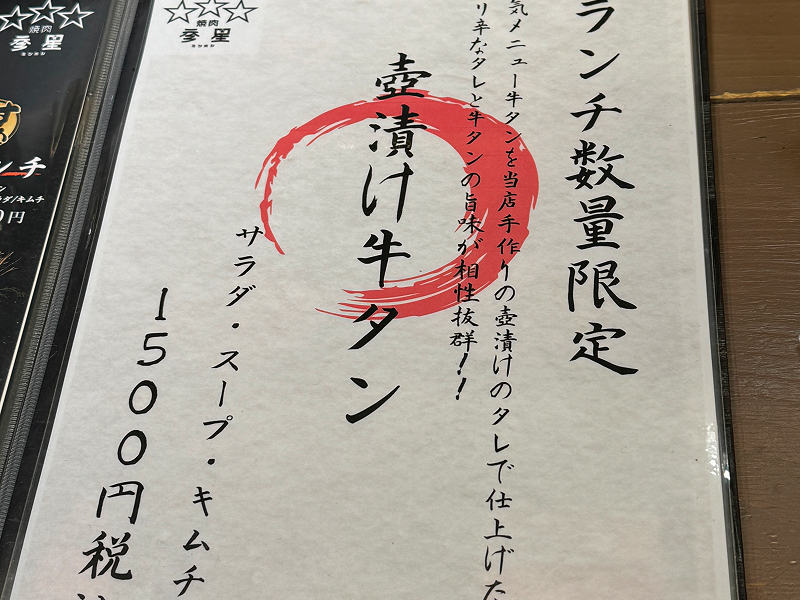 ランチ数量限定
気メニュー牛タンを当店手作りの壺漬けのタレで仕上げた
リ辛なタレと牛タンの旨味が相性抜群！！
壺漬け牛タン
サラダ・スープ・キムチ
1500円税
焼肉
参星
焼肉
参星
ンチ
ン
ラダ/キムチ
0円